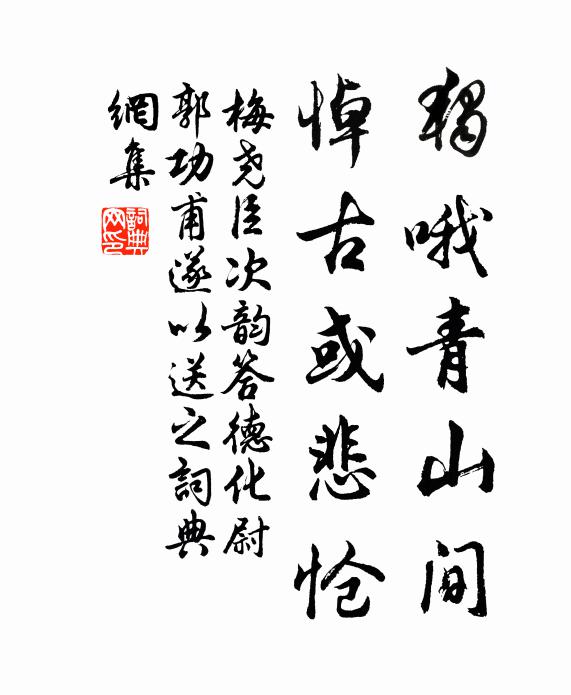 独哦青山间
悼古或悲怆
梅尧臣次韵答德化尉
郭功甫遂以送之詞典
網集
詞典网印